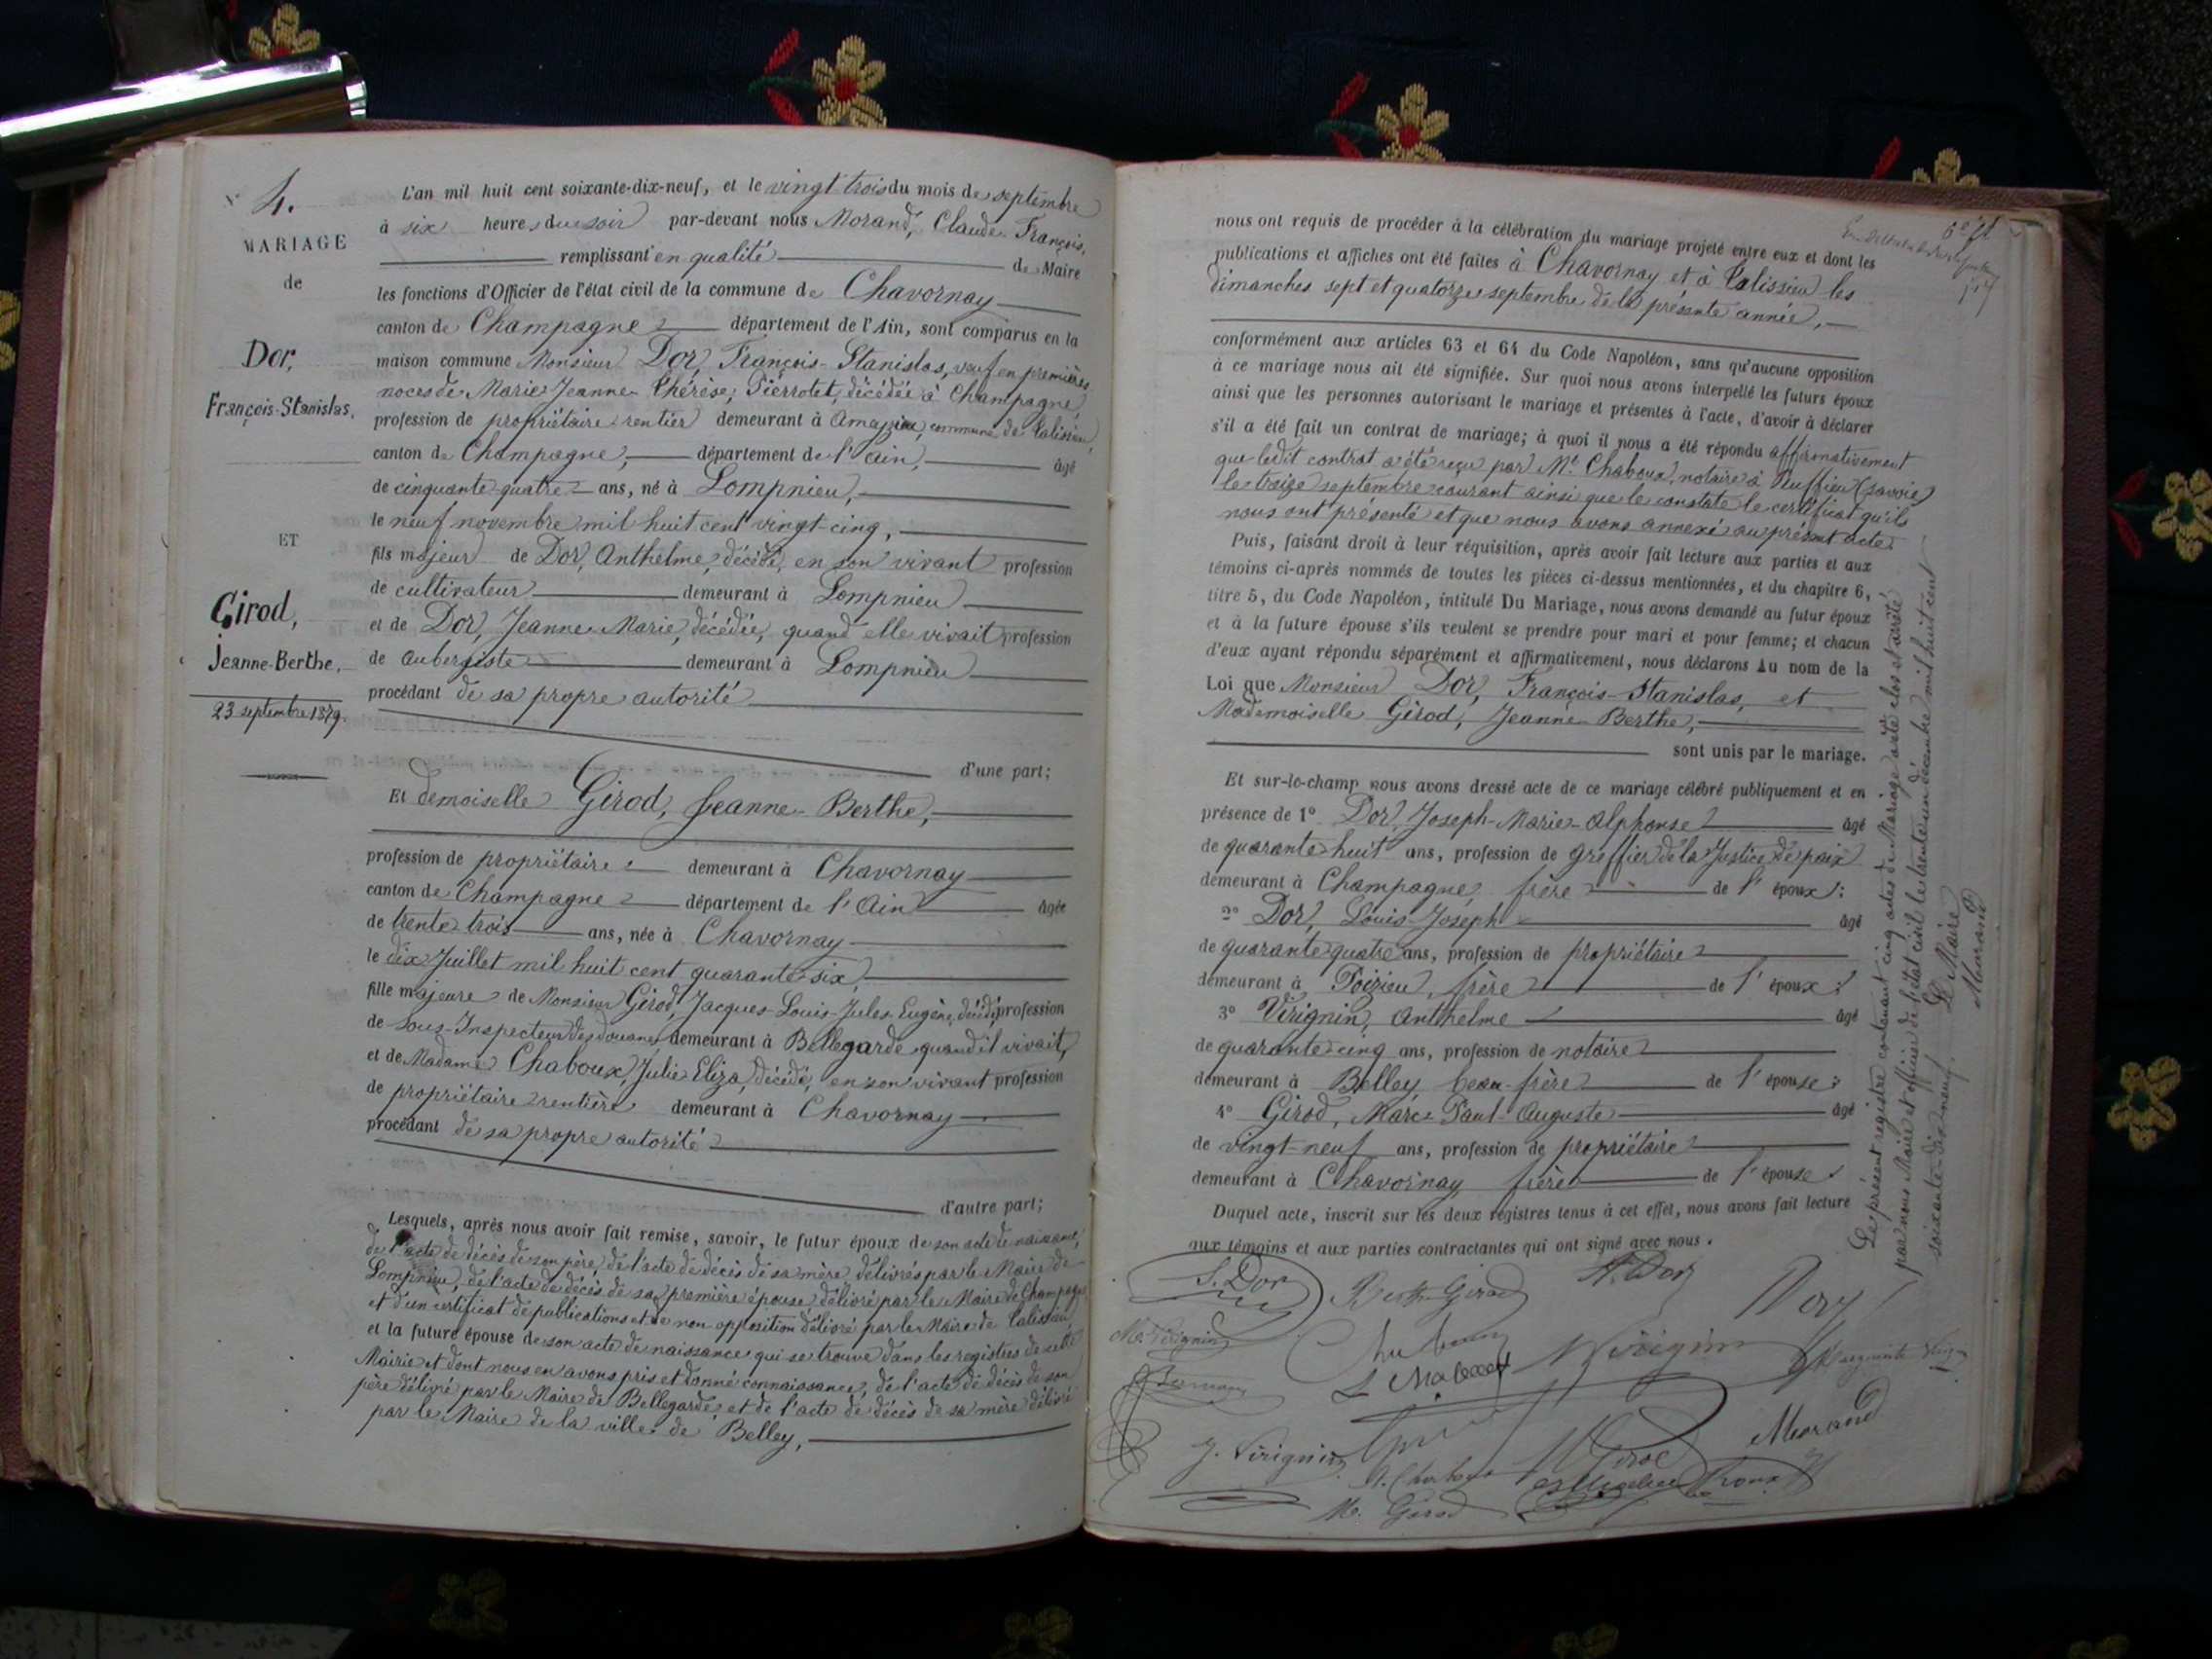 N° 4.
MARIAGE
de
Dor,
François-Stanislas,
ET
Girod,
Jeanne-Berthe,
23 septembre 1879.
L'an mil huit cent soixante-dix-neuf, et le vingt trois du mois de septembre
à six heures du soir par-devant nous Morand, Claude François,
remplissant en qualité de Maire
les fonctions d'Officier de l'état civil de la commune de Chavornay
canton de Champagne département de l'Ain, sont comparus en la
maison commune Monsieur Dor, François-Stanislas, veuf en premières
noces de Marie Jeanne Thérèse, Pierrotet, décédée à Champagne,
profession de propriétaire rentier demeurant à Ameyzieu, commune de Talissieu,
canton de Champagne, département de l'Ain, âgé
de cinquante quatre ans, né à Lompnieu,
le neuf novembre mil huit cent vingt-cinq,
fils majeur de Dor, Anthelme, décédé, en son vivant profession
de cultivateur demeurant à Lompnieu
et de Dor, Jeanne-Marie, décédée, quand elle vivait profession
de aubergiste demeurant à Lompnieu
procédant de sa propre autorité
d'une part;
Et demoiselle Girod, Jeanne-Berthe,
profession de propriétaire demeurant à Chavornay
canton de Champagne département de l'Ain âgée
de trente trois ans, née à Chavornay
le dix Juillet mil huit cent quarante-six,
fille majeure de Monsieur Girod, Jacques-Louis-Jules-Eugène, décédé, profession
de Sous-Inspecteur des douanes demeurant à Bellegarde quand il vivait,
et de Madame Chaboux, Julie Eliza, décédé, en son vivant profession
de propriétaire rentière demeurant à Chavornay
procédant de sa propre autorité
d'autre part;
Lesquels, après nous avoir fait remise, savoir, le futur époux de son acte de naissance,
de l'acte de décès de son père, de l'acte de décès de sa mère, délivrés par le Maire de
Lompnieu, de l'acte de décès de sa première épouse, délivré par le Maire de Champagne
et d'un certificat de publications et de non opposition délivré par le Maire de Talissieu,
et la future épouse de son acte de naissance qui se trouve dans les registres de cette
Mairie et dont nous en avons pris et donné connaissance, de l'acte de décès de son
père délivré par le Maire de Bellegarde, et de l'acte de décès de sa mère délivré
par le Maire de la ville de Belley,
nous ont requis de procéder à la célébration du mariage projeté entre eux et dont les
publications et affiches ont été faites à Chavornay et à Talissieu les
dimanches sept et quatorze septembre de la présente année,
conformément aux articles 63 et 64 du Code Napoléon, sans qu'aucune opposition
à ce mariage nous ait été signifiée. Sur quoi nous avons interpellé les futurs époux
ainsi que les personnes autorisant le mariage et présentes à l'acte, d'avoir à déclarer
s'il a été fait un contrat de mariage; à quoi il nous a été répondu affirmativement
que ledit contrat a été reçu par Mt. Chaboux, notaire à Ruffieu (savoie)
le treize septembre courant ainsi que le constate le certificat qu'ils
nous ont présenté et que nous avons annexé au présent acte.
Puis, faisant droit à leur réquisition, après avoir fait lecture aux parties et aux
témoins ci-après nommés de toutes les pièces ci-dessus mentionnées, et du chapitre 6,
titre 5, du Code Napoléon, intitulé Du Mariage, nous avons demandé au futur époux
et à la future épouse s'ils veulent se prendre pour mari et pour femme; et chacun
d'eux ayant répondu séparément et affirmativement, nous déclarons Au nom de la
Loi que Monsieur Dor, François-Stanislas, et
Mademoiselle Girod, Jeanne-Berthe,
sont unis par le mariage.
Et sur-le-champ nous avons dressé acte de ce mariage célébré publiquement et en
présence de 1° Dor, Joseph-Marie-Alphonse âgé
de quarante-huit ans, profession de greffier de la Justice de paix
demeurant à Champagne, frère de l'époux:
2° Dor, Louis-Joseph âgé
de quarante quatre ans, profession de propriétaire
demeurant à Poizieu, frère de l'époux:
3° Virignin, Anthelme âgé
de quarante-cinq ans, profession de notaire
demeurant à Belley beau-frère de l'épouse:
4° Girod, Marc-Paul-Auguste âgé
de vingt-neuf ans, profession de propriétaire
demeurant à Chavornay frère de l'épouse.
Duquel acte, inscrit sur les deux registres tenus à cet effet, nous avons fait lecture
aux témoins et aux parties contractantes qui ont signé avec nous.
S. Dor
Berthe Girod
A. Dor
Dor
M. Virignin
L Chaboux
Virignin
J. Virignin
Girod
Morand
M. Girod
Le présent registre contenant cinq actes de Mariage a été clos et arrêté
par nous Maire et officier de l'état civil le trente un décembre mil huit cent
soixante-dix-neuf. Le Maire
Morand